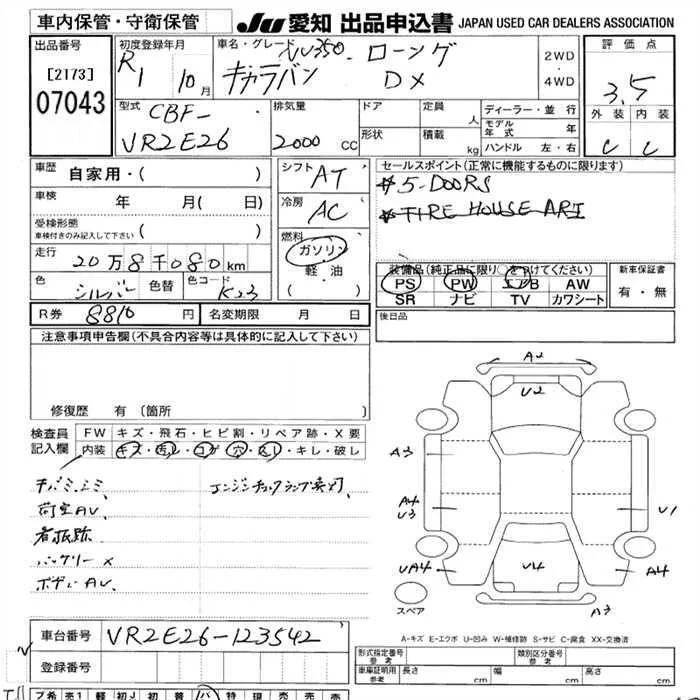 車内保管・守衛保管
JU 愛知 出品申込書 JAPAN USED CAR DEALERS ASSOCIATION
出品番号
[2173]
07043
初度登録年月
R1 10月
車名・グレード
NV350. ローング
キャラバン DX
2WD
・
4WD
評価点
3.5
外装 内装
C C
型式
CBF-
VR2E26
排気量
2000 CC
ドア
定員 人
形状
積載 kg
ディーラー・並行
モデル年式 年
ハンドル 左・右
車歴
自家用・( )
車検 年 月( 日)
受検形態
車検付きのみ記入して下さい ( )
走行
20万8千080km
色
シルバー
色替
色コード
K23
シフト
AT
冷房
AC
燃料
ガソリン
・
軽・油
・
( )
セールスポイント(正常に機能するものに限ります)
*5-DOORS
*TIRE HOUSE ARI
装備品(純正品に限り○をつけてください)
PS PW エアB AW
SR ナビ TV カワシート
新車保証書
有・無
R券 8810 円
名変期限 月 日
後日品
注意事項申告欄(不具合内容等は具体的に記入して下さい)
修復歴 有 〔箇所
検査員記入欄
FW キズ・飛石・ヒビ割・リペア跡・X要
内装 キズ・汚レ・コゲ・穴・スレ・キレ・破レ
荷室AU、
バッテリーX
ボディAU、
A2
U2
A3
A4
U3
U1
UA4
U4
A4
A3
スペア
A-キズ E-エクボ U-凹み W-補修跡 S-サビ C-腐食 XX-交換済
車台番号
VR2E26-123542
登録番号
形式指定番号
参考
類別区分番号
参考
車庫証明用
参考
長さ cm
幅 cm
高さ cm